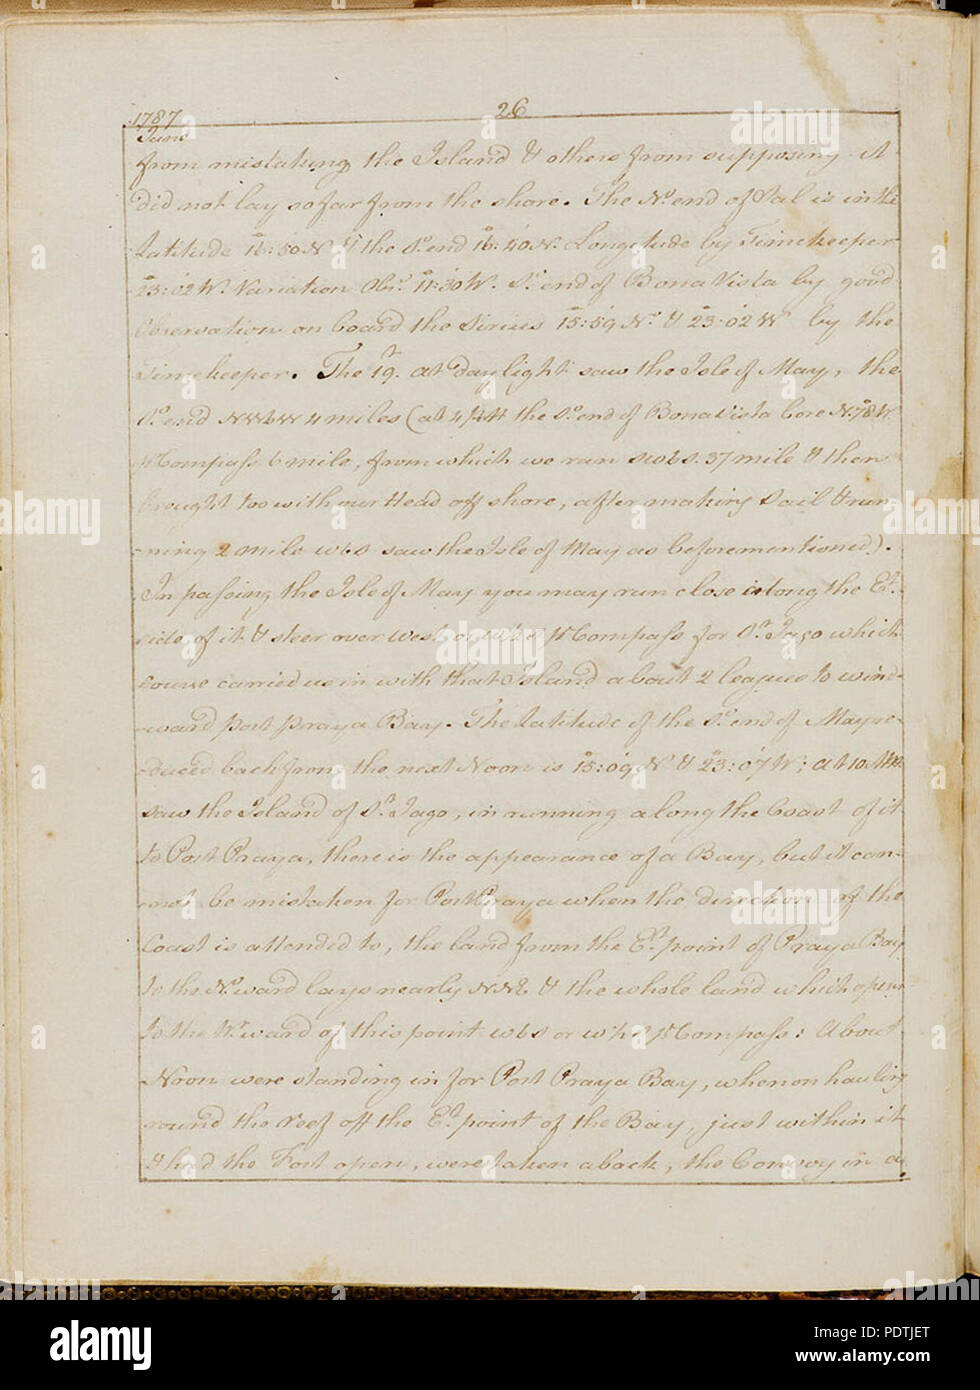 26
1787
June
from mistaking the Island & others from supposing it
did not lay so far from the shore. The No. end of Sal is in the
Latitude 16°:50' N & the So. end 16°:40' N. Longitude by Timekeeper
23°:02' W. Variation Obs. 11°:30' W. So. end of Bona Vista by good
Observation on board the Sirius 15°:59' No. & 23°:02' W by the
Timekeeper. The 19. at daylight saw the Isle of May, the
So. end NWbW 4 miles (at 4 AM the So. end of Bona Vista bore N.78°W.
pr Compass 6 mile, from which we run SWbS. 37 mile & then
brought too with our Head off shore, after making Sail & run-
-ning 2 mile WbS saw the Isle of May as beforementioned).
In passing the Isle of May you may run close along the Et.
side of it & steer over West, or pr Compass for St. Jago which
course carried us in with that Island about 2 leagues to wind-
-ward port praya Bay. The Latitude of the So. end of May re-
-duced back from the next Noon is 15°:09' N & 23°:07' W; at 10 AM
saw the Island of St. Jago, in running along the Coast of it
to Port Praya, there is the appearance of a Bay, but it can-
-not be mistaken for Port Praya when the direction of the
Coast is attended to, the land from the Et. point of Praya Bay
to the No. ward lays nearly NNE & the whole land which opens
to the Wt. ward of this point WbS or pr Compass: About
Noon were standing in for Port Praya Bay, when on hauling
round the reef off the Et. point of the Bay, just within it
& had the Fort open, were taken aback, the Convoy in a
alamy
alamy
Image ID: PDTJET
www.alamy.com